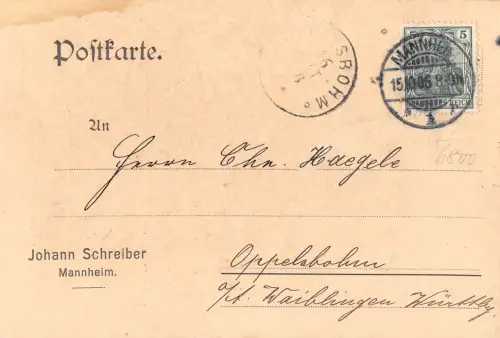 Postkarte.
5
MANNHEIM
15.10.06
DEUTSCHES REICH
An
Herrn Chr. Haegele
Johann Schreiber
Mannheim.
Oppelsbohm
Waiblingen Württbg